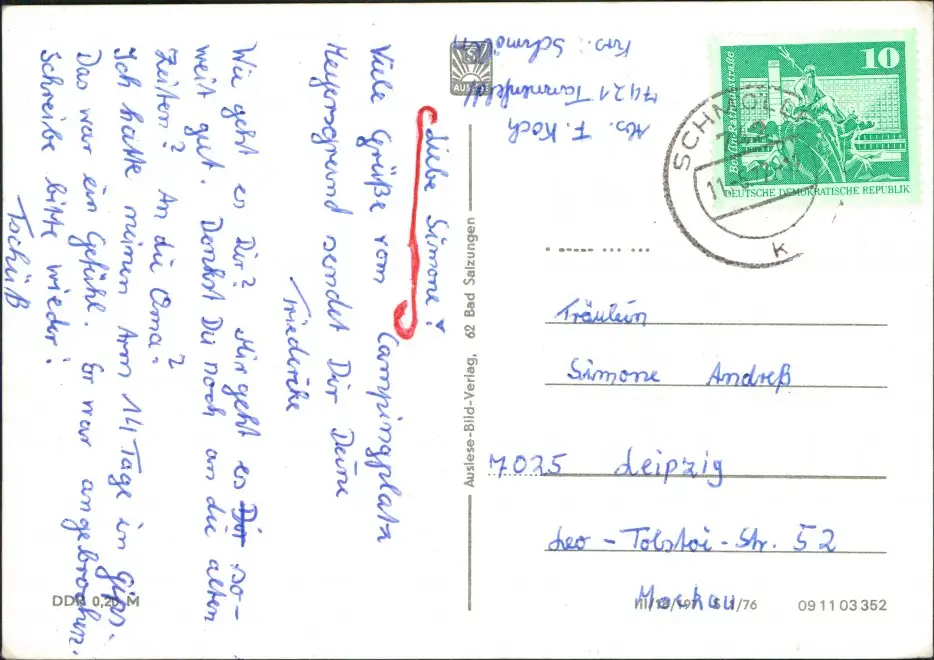 Liebe Simone!
Viele Grüße vom Campingplatz
Meyersgrund sendet Dir Deine
Friederike
Wie geht es Dir? Mir geht es Dir so-
weit gut. Denkst Du noch an die alten
Zeiten? An die Oma?
Ich hatte meinen Arm 14 Tage in Gips.
Das war ein Gefühl. Er war angebrochen.
Schreibe bitte wieder!
Tschüß
DDR 0,20 M
Auslese-Bild-Verlag, 62 Bad Salzungen
AUSLESE
Abs. F. Koch
7421 Tannenfeld
Krs.: Schmölln
10
Berlin·Rathausstraße
DEUTSCHE DEMOKRATISCHE REPUBLIK
SCHMÖLLN
K
Fräulein
Simone Andreß
7025 Leipzig
Leo-Tolstoi-Str. 52
Mockau
1/76
09 11 03 352